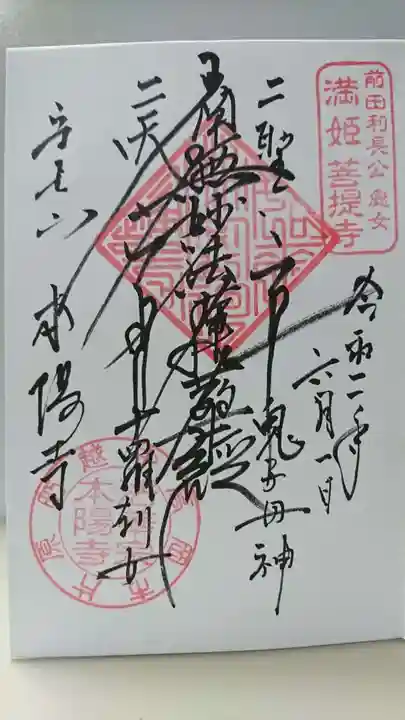 前田利長公
満姫菩提寺
令和二年
六月一日
二聖
鬼子母神
南無妙法蓮華経
二天
十羅刹女
本陽寺
越中高岡市片原町
本陽寺